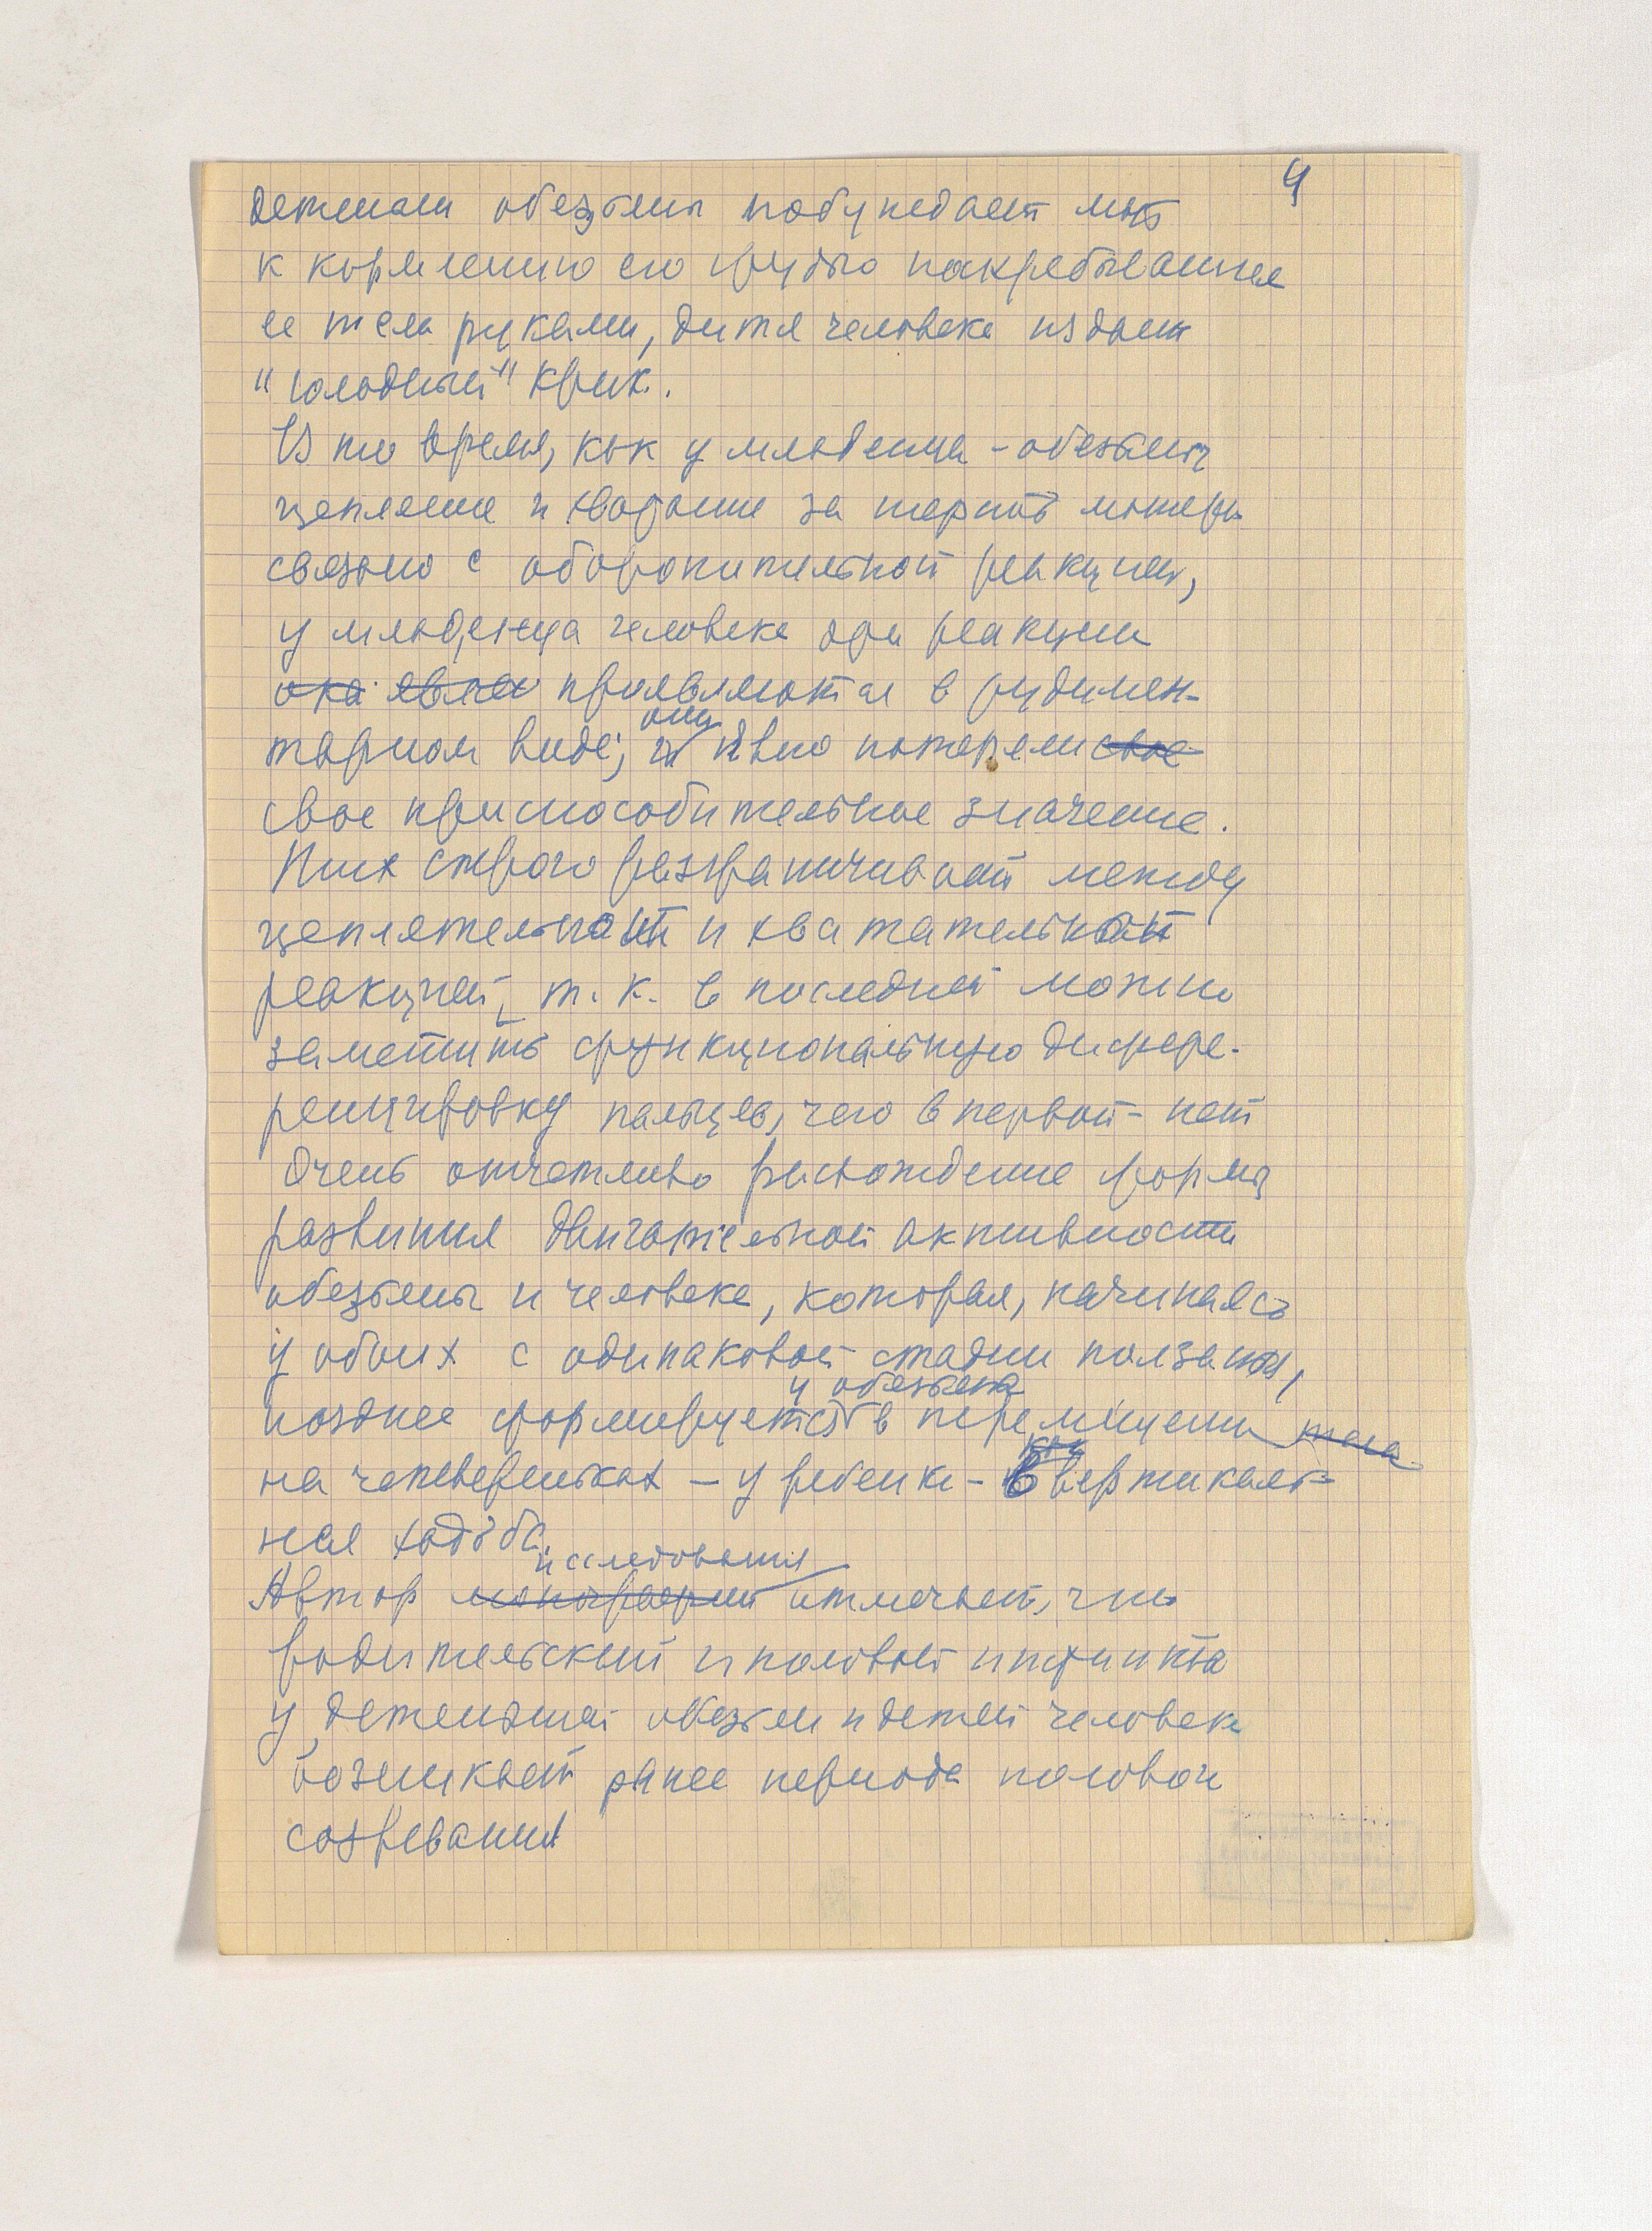 4
детеныш обезьяны побуждает мать
к кормлению его грудью
ее тела руками, дитя человека издает
"голодный" крик.
В то время, как у младенца-обезьяны
цепляние и хватание за шерсть матери
связано с оборонительной реакцией,
у младенца человека эти реакции
она явля проявляются в рудимен-
тарном виде; они явно потеряли свое
свое приспособительное значение.
строго разграничивает между
цеплятельной и хватательной
реакцией, т. к. в последней можно
заметить функциональную дифере-
ренцировку пальцев, чего в первой - нет
Очень отчетливо расхождение формы
развития двигательной активности
обезьяны и человека, которая, начинаясь
у обоих с одинаковой стадии ползания,
у обезьяны
позднее формируется в перемещении тела
на четвереньках — у ребенка - в вертикаль-
ная ходьба.
исследования
Автор монографии отмечает, что
родительский и половой инстинкта
у детенышей обезьян и детей человека
возникает ранее периода половой
созревания